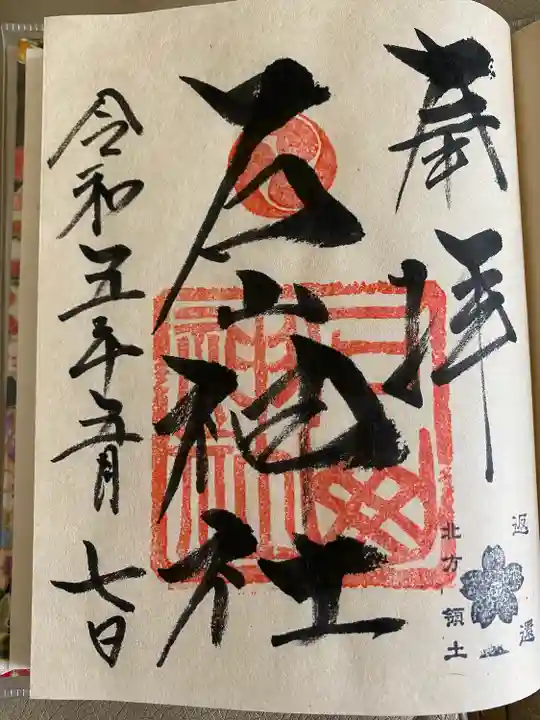 奉拝
山神社
令和五年五月七日
返還
北方領土